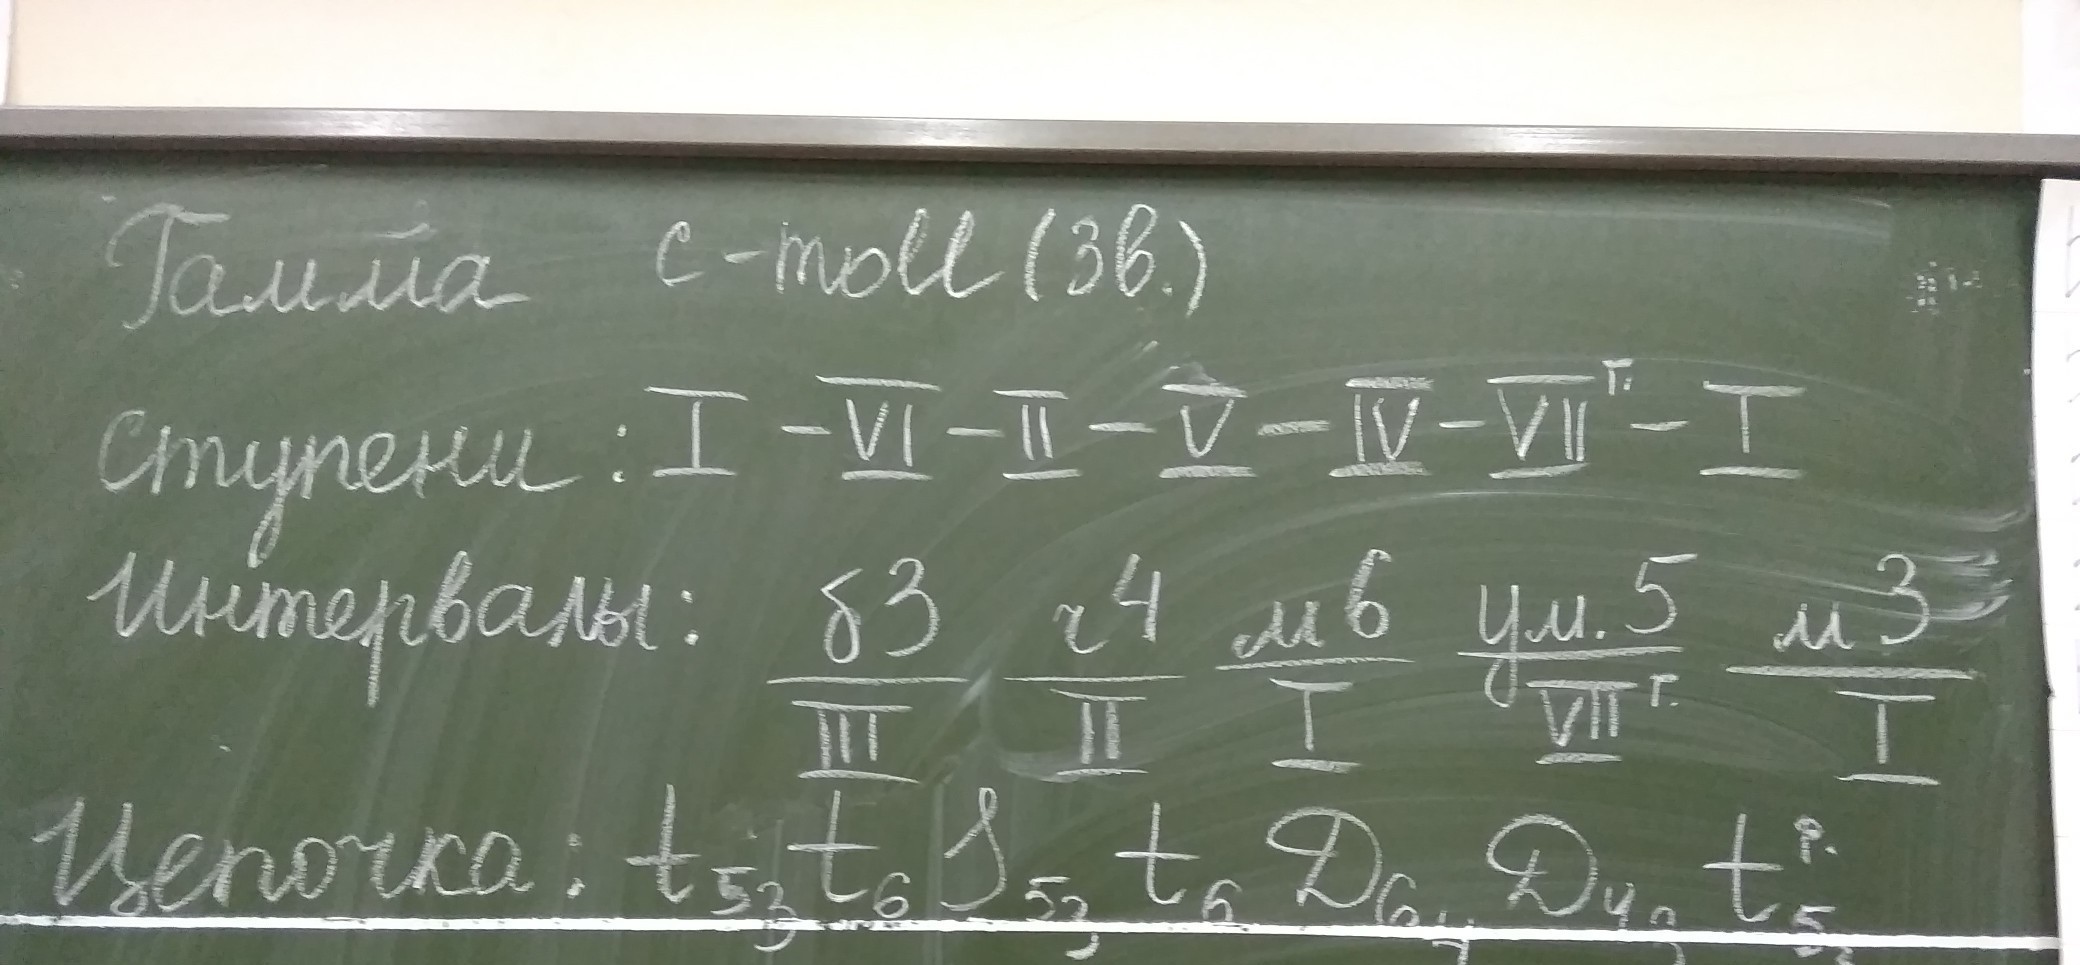 Гамма c-moll (3в.)
Ступени: I - VI - II - V - IV - VII г. - I
Интервалы: б3/III ч4/II м6/I ум.5/VII г. м3/I
Цепочка: t53 t6 S53 t6 D64 D43 t53 р.